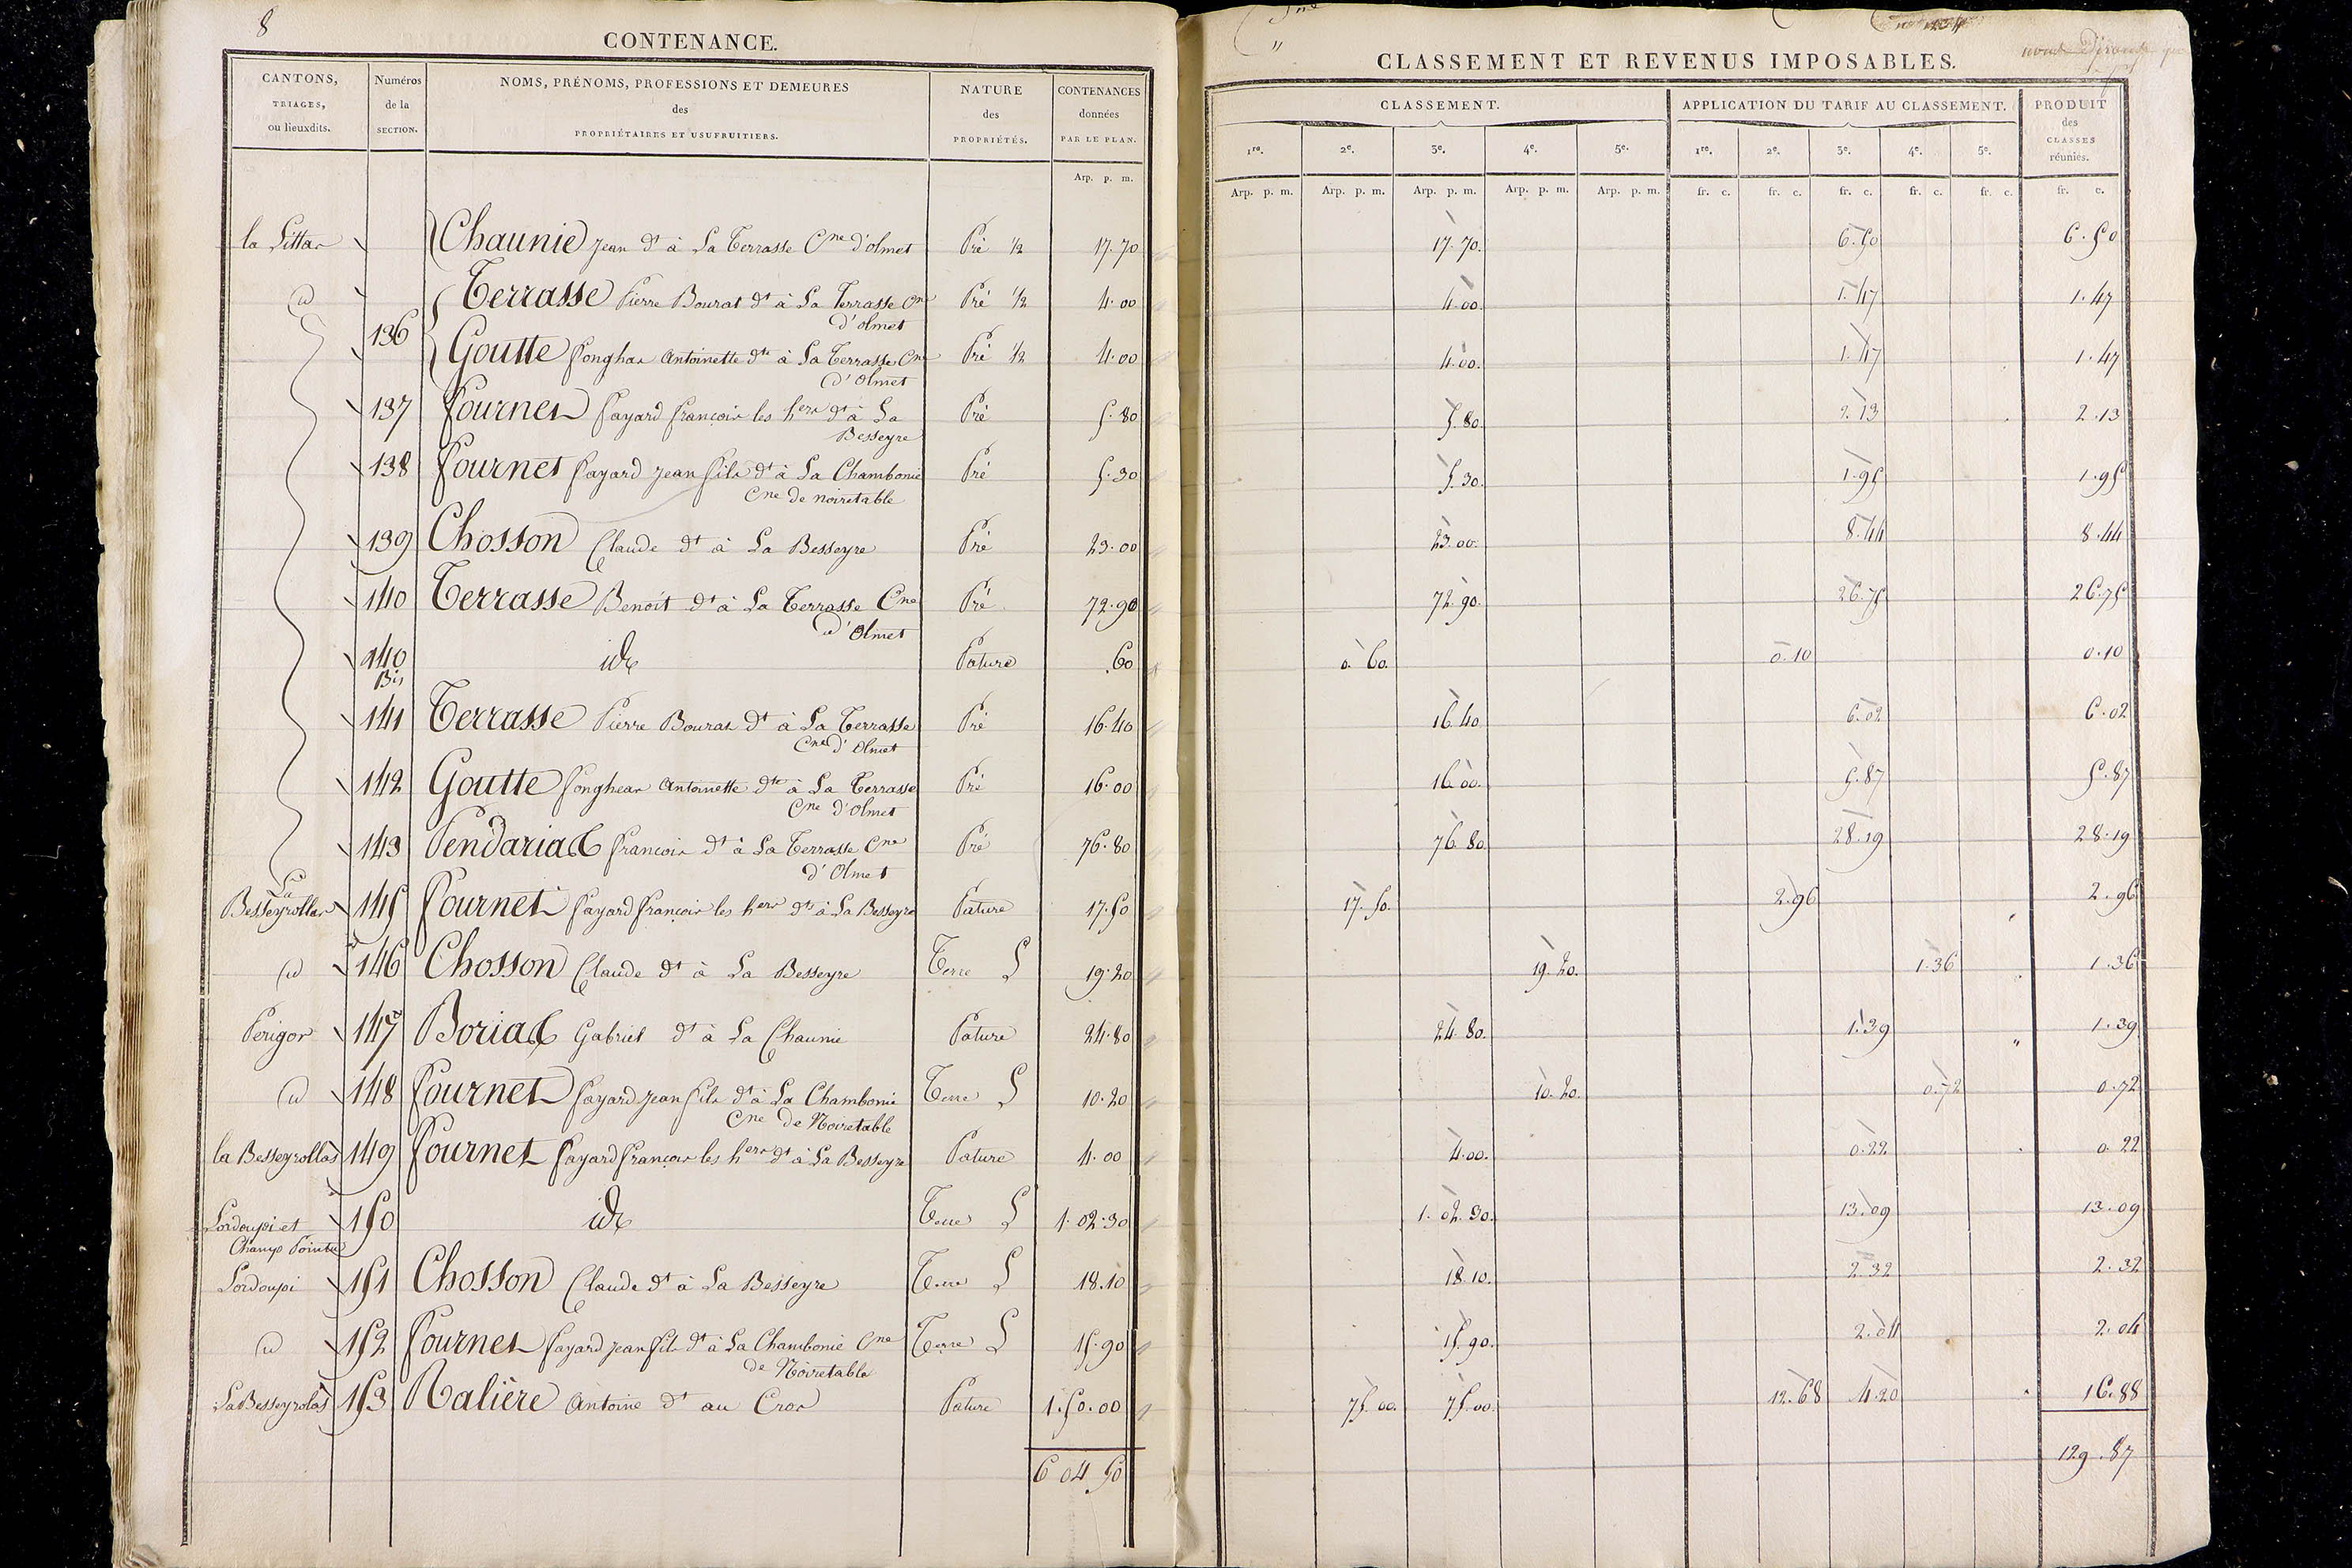 8
CONTENANCE.
CANTONS, TRIAGES, ou lieuxdits. | Numéros de la SECTION. | NOMS, PRÉNOMS, PROFESSIONS ET DEMEURES des PROPRIÉTAIRES ET USUFRUITIERS. | NATURE des PROPRIÉTÉS. | CONTENANCES données PAR LE PLAN.
Arp. p. m.
la Littas | Chaunie Jean dt à La Terrasse Cne d'olmet | Pré ½ | 17.70
id | Terrasse Pierre Bourat dt à La Terrasse Cne | Pré ½ | 4.00
d'olmet
136 | Goutte Antoinette dte à La Terrasse Cne | Pré ½ | 4.00
d'Olmet
137 | Fournet fayard françois les hers dt à La | Pré | 5.80
Besseyre
138 | Fournet fayard Jean fils dt à La Chambonie | Pré | 5.30
Cne de noiretable
139 | Chosson Claude dt à La Besseyre | Pré | 23.00
140 | Terrasse Benoît dt à La Terrasse Cne | Pré | 72.90
d'Olmet
140 | id | Pature | .60
Bis
141 | Terrasse Pierre Bourat dt à La Terrasse | Pré | 16.40
Cne d'Olmet
142 | Goutte Antoinette dte à La Terrasse | Pré | 16.00
Cne d'Olmet
143 | Vendariat françois dt à La Terrasse Cne | Pré | 76.80
d'Olmet
La
Besseyrollas | 145 | Fournet fayard françois les hers dt à La Besseyre | Pature | 17.50
id | 146 | Chosson Claude dt à La Besseyre | Terre L | 19.20
Perigor | 147 | Boriat Gabriel dt à La Chaunie | Pature | 24.80
id | 148 | Fournet fayard Jean fils dt à La Chambonie | Terre L | 10.20
Cne de Noiretable
la Besseyrollas | 149 | Fournet fayard françois les hers dt à La Besseyre | Pature | 4.00
Lordoupi et | 150 | id | Terre L | 1.02.30
Champ Pointu
Lordoupi | 151 | Chosson Claude dt à La Besseyre | Terre L | 18.10
id | 152 | Fournet fayard Jean fils dt à La Chambonie Cne | Terre L | 15.90
de Noiretable
La Besseyrolas | 153 | Ralière Antoine dt au Cros | Pature | 1.50.00
6 04 50
CLASSEMENT ET REVENUS IMPOSABLES.
CLASSEMENT. | APPLICATION DU TARIF AU CLASSEMENT. | PRODUIT des CLASSES réunies.
1re. | 2e. | 3e. | 4e. | 5e. | 1re. | 2e. | 3e. | 4e. | 5e.
Arp. p. m. | Arp. p. m. | Arp. p. m. | Arp. p. m. | Arp. p. m. | fr. c. | fr. c. | fr. c. | fr. c. | fr. c. | fr. c.
17.70. | 6.50 | 6.50
4.00. | 1.47 | 1.47
4.00. | 1.47 | 1.47
5.80. | 2.13 | 2.13
5.30. | 1.95 | 1.95
23.00. | 8.44 | 8.44
72.90. | 26.75 | 26.75
0.60. | 0.10 | 0.10
16.40 | 6.02 | 6.02
16.00. | 5.87 | 5.87
76.80. | 28.19 | 28.19
17.50. | 2.96 | 2.96
19.20. | 1.36 | 1.36
24.80. | 1.39 | 1.39
10.20. | 0.72 | 0.72
4.00. | 0.22 | 0.22
1.02.30. | 13.09 | 13.09
18.10. | 2.32 | 2.32
15.90. | 2.04 | 2.04
75.00. | 75.00. | 12.68 | 4.20 | 16.88
129.87